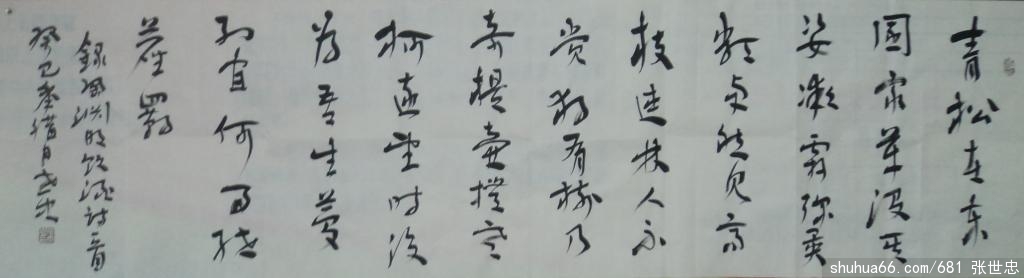 青松在东
園衆草没其
姿凝霜殄异
類卓然见高
枝连林人不
觉独有树乃
奇提壶撫寒
柯远望时复
为吾生梦
幻间何事绁
塵羁
録陶渊明饮酒诗一首
癸巳 腊月世忠
shuhua66.com/681 张世忠